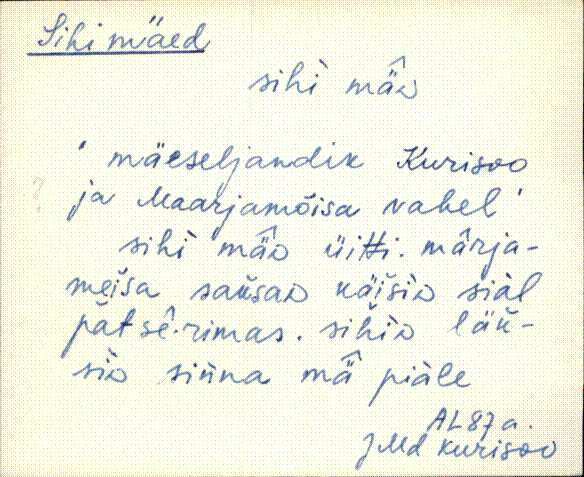 Sihimäed
sihì mäᴅ̂
' mäeseljandik Kurisoo
ja Maarjamõisa vahel '
sihì mäᴅ̂ üitti. mârja-
meìsa saksaᴅ käìsiᴅ siàl
pätsê.rimas. sihìᴅ läk-
siᴅ siǹna mä̂ piàle
AL 87 a.
JMd Kurisoo